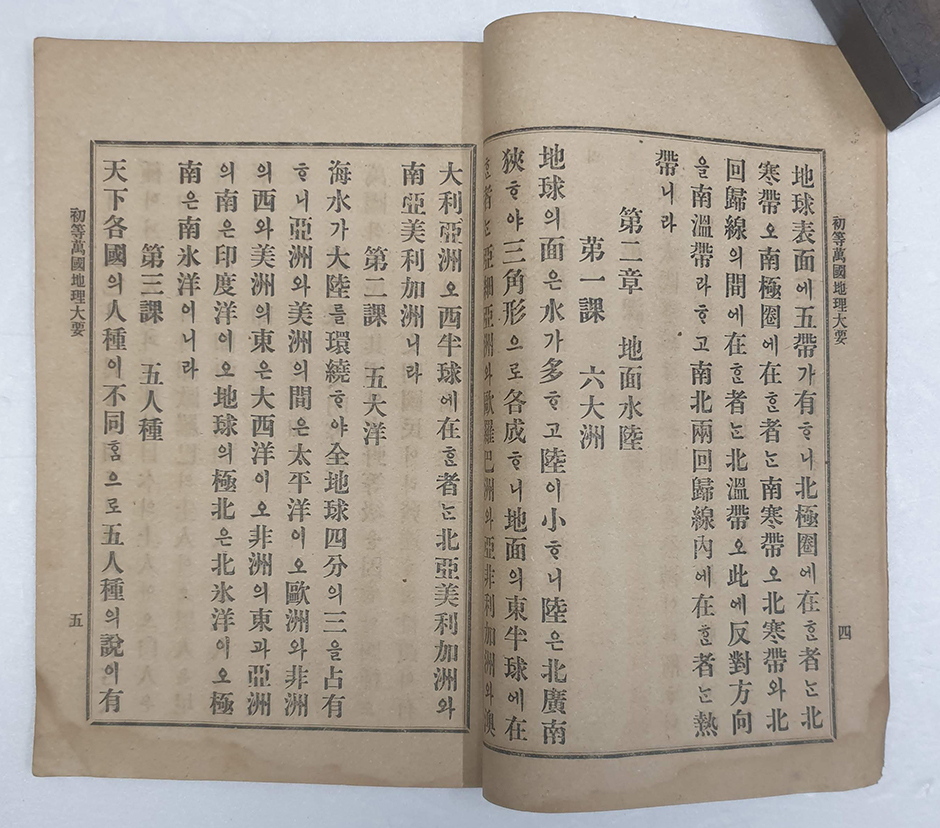 初等萬國地理大要
四
地球表面에五帶가有ᄒᆞ니北極圈에在ᄒᆞᆫ者ᄂᆞᆫ北
寒帶오南極圈에在ᄒᆞᆫ者ᄂᆞᆫ南寒帶오北寒帶와北
回歸線의間에在ᄒᆞᆫ者ᄂᆞᆫ北溫帶오此에反對方向
을南溫帶라ᄒᆞ고南北兩回歸線內에在ᄒᆞᆫ者ᄂᆞᆫ熱
帶니라
第二章 地面水陸
第一課 六大洲
地球의面은水가多ᄒᆞ고陸이小ᄒᆞ니陸은北廣南
狹ᄒᆞ야三角形으로各成ᄒᆞ니地面의東半球에在
ᄒᆞᆫ者ᄂᆞᆫ亞細亞洲와歐羅巴洲와亞非利加洲와澳
大利亞洲오西半球에在ᄒᆞᆫ者ᄂᆞᆫ北亞美利加洲와
南亞美利加洲니라
第二課 五大洋
海水가大陸를環繞ᄒᆞ야全地球四分의三을占有
ᄒᆞ니亞洲와美洲의間은太平洋이오歐洲와非洲
의西와美洲의東은大西洋이오非洲의東과亞洲
의南은印度洋이오地球의極北은北氷洋이오極
南은南氷洋이니라
第三課 五人種
天下各國의人種이不同ᄒᆞᆷ으로五人種의說이有
初等萬國地理大要
五